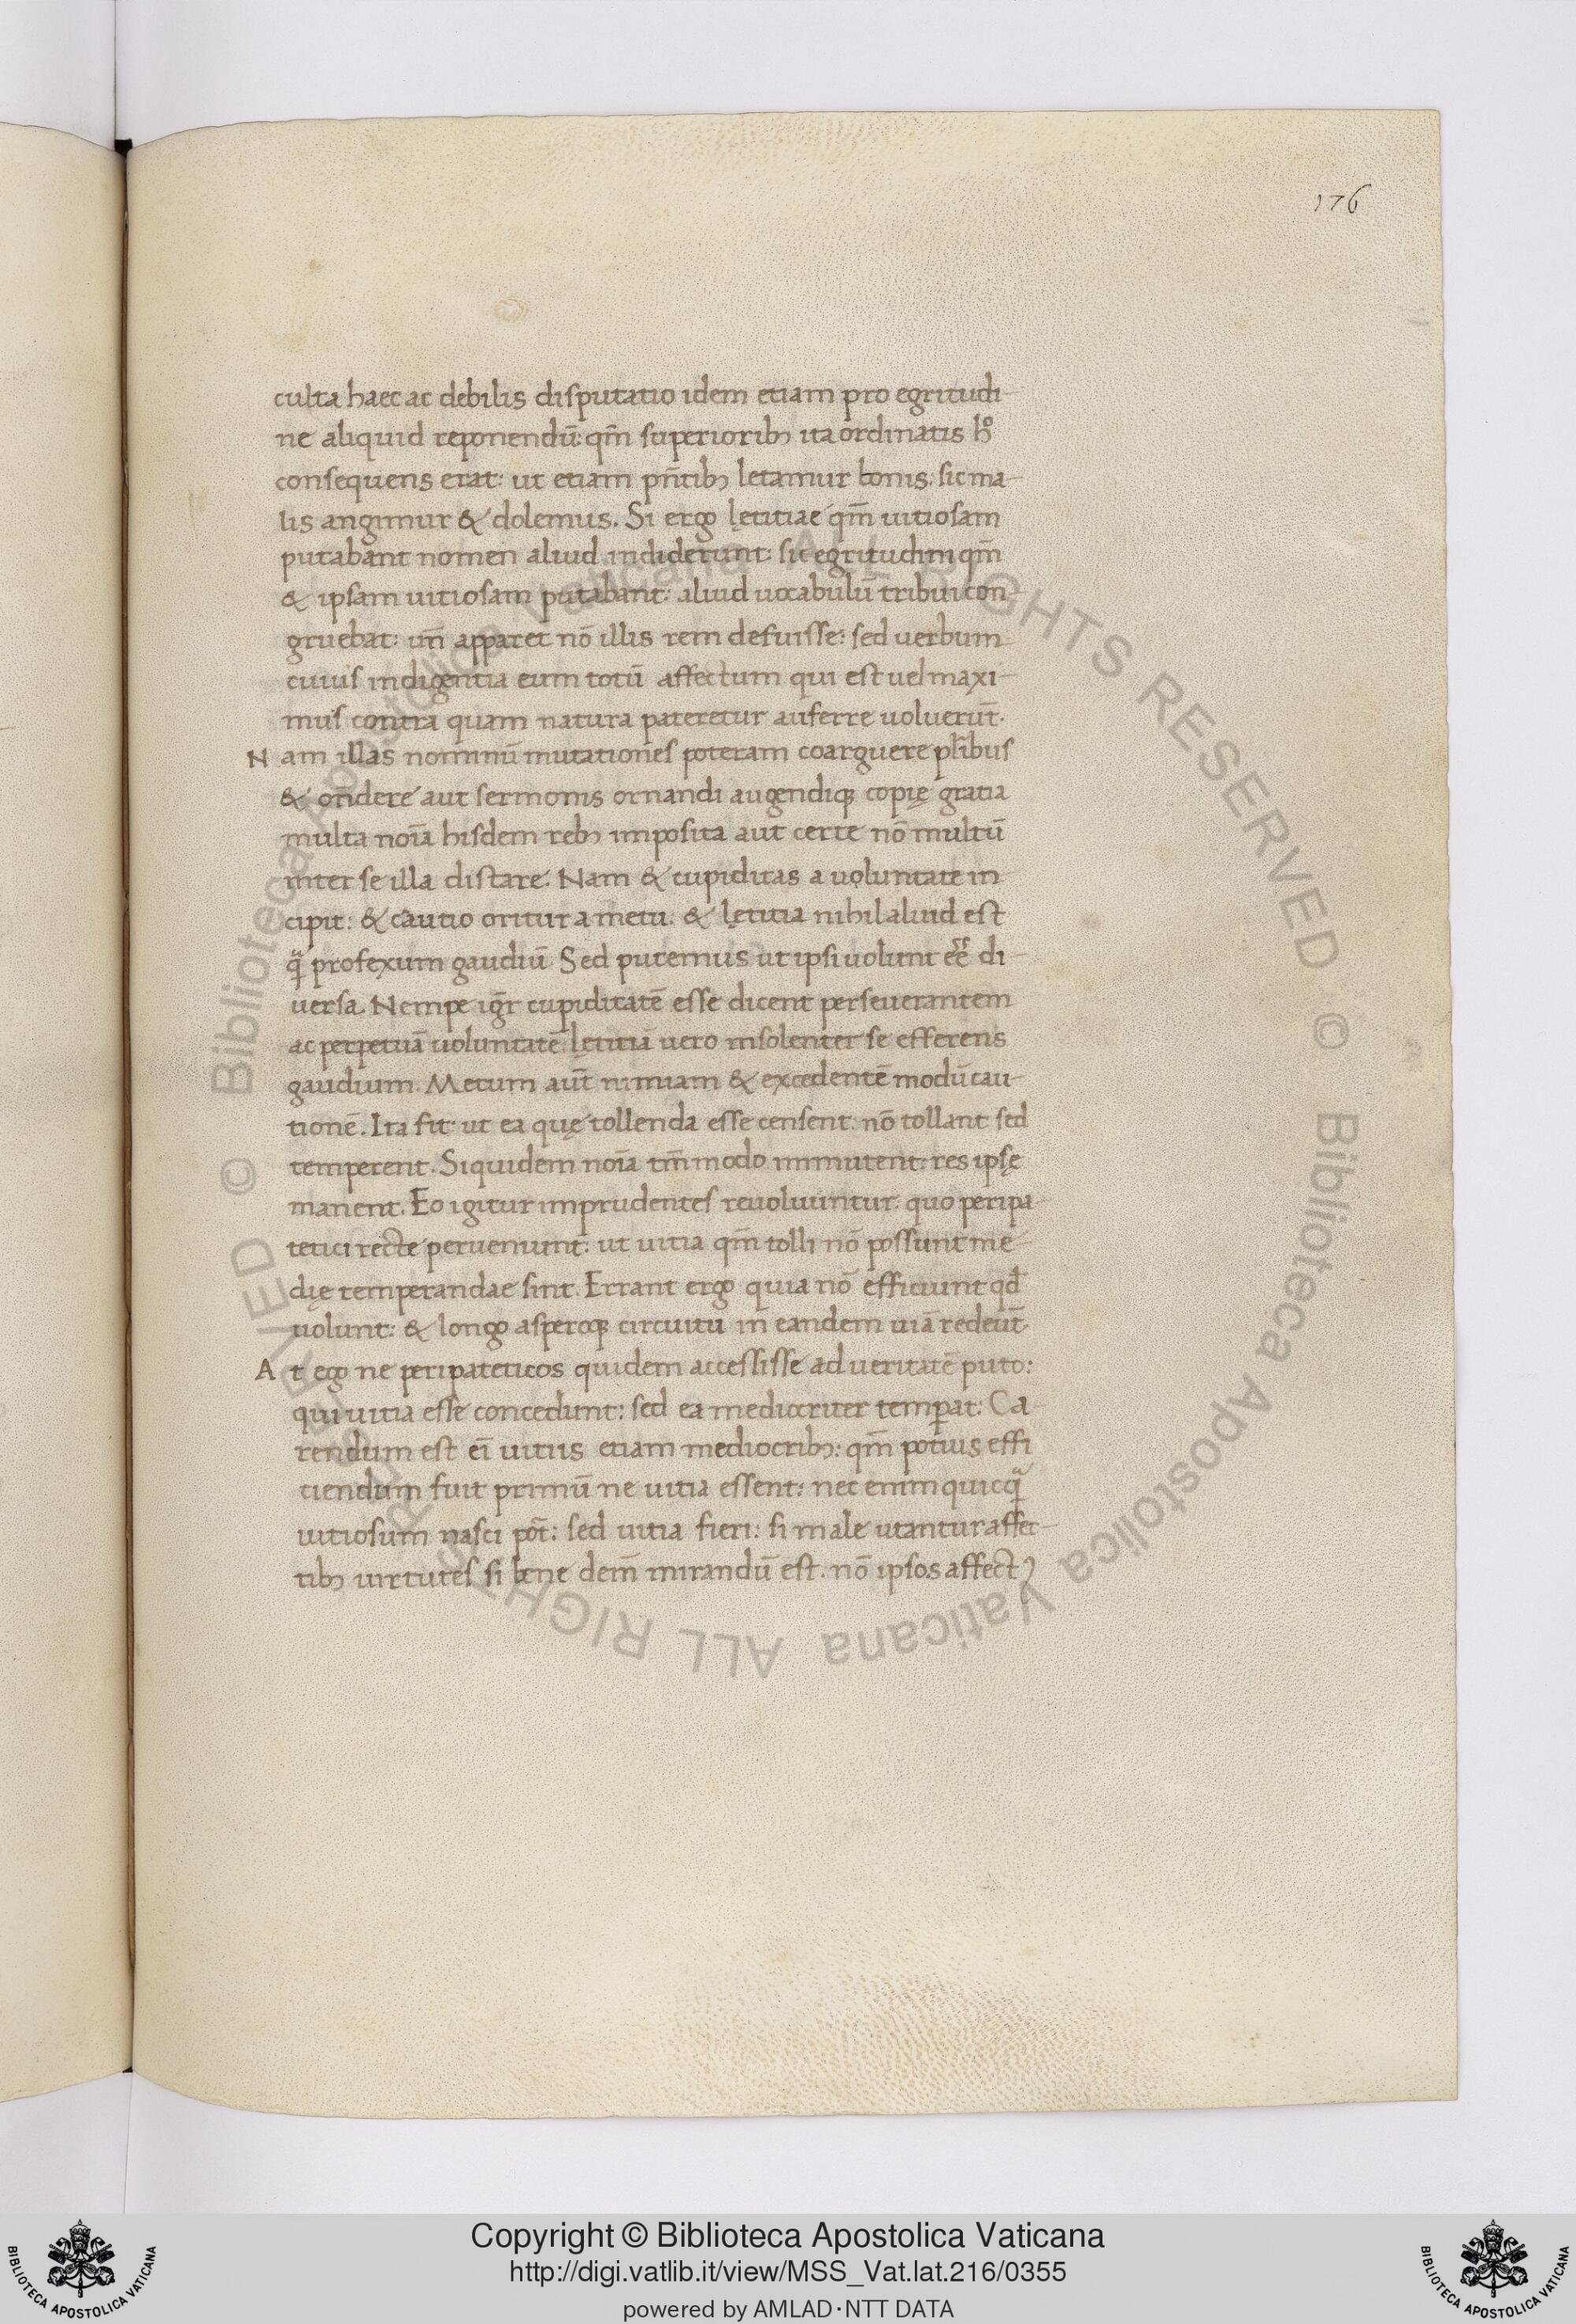 176
culta haec ac debilis disputatio idem etiam pro egritudi-
ne aliquid reponendū: qm̄ superiorib; ita ordinatis hͦ
consequens erat: ut etiam pn̄tib; letamur bonis: sic ma-
lis angimur & dolemus. Si ergo lętitiae qm̄ uitiosam
putabant nomen aliud indiderunt: sic egritudini qm̄
& ipsam uitiosam putabant: aliud uocabulū tribui con-
gruebat: un̄ apparet nō illis rem defuisse: sed uerbum
cuius indigentia eum totū affectum qui est uel maxi-
mus contra quam natura pateretur auferre uoluerūt.
Nam illas nominū mutationes poteram coarguere pl̄ibus
& on̄dere aut sermonis ornandi augendiq; copię gratia
multa noīa hisdem reb; imposita aut certe nō multū
inter se illa distare. Nam & cupiditas a uoluntate in
cipit: & cautio oritur a metu. & lętitia nihil aliud est
q̄ profexum gaudiū. Sed putemus ut ipsi uolunt eē di-
uersa. Nempe igr̄ cupiditatē esse dicent perseuerantem
ac perpetuā uoluntatē: lętitiā uero insolenter se efferens
gaudium. Metum aūt nimiam & excedentē modū cau-
tionē. Ita fit: ut ea quę tollenda esse censent: nō tollant sed
temperent. Siquidem noīa tm̄modo immutent: res ipsę
manent. Eo igitur imprudentes reuoluuntur: quo peripa-
tetici recte perueniunt: ut uitia qm̄ tolli nō possunt me-
dię temperandae sint. Errant ergo quia nō efficiunt qd̄
uolunt: & longo asperoq; circuitu in eandem uiā redeūt.
At ego ne peripateticos quidem accessisse ad ueritatē puto:
qui uitia esse concedunt: sed ea mediocriter temp̄at: Ca-
rendum est eī uitiis etiam mediocrib;: qm̄ potius effi
ciendum fuit primū ne uitia essent: nec enim quicq̄
uitiosum nasci pōt: sed uitia fieri: si male utantur affec-
tib; uirtutes si bene dem̄ mirandū est. nō ipsos affectꝰ
Copyright © Biblioteca Apostolica Vaticana
http://digi.vatlib.it/view/MSS_Vat.lat.216/0355
powered by AMLAD·NTT DATA
BIBLIOTECA APOSTOLICA VATICANA
BIBLIOTECA APOSTOLICA VATICANA
© Biblioteca Apostolica Vaticana ALL RIGHTS RESERVED © Biblioteca Apostolica Vaticana ALL RIGHTS RESERVED